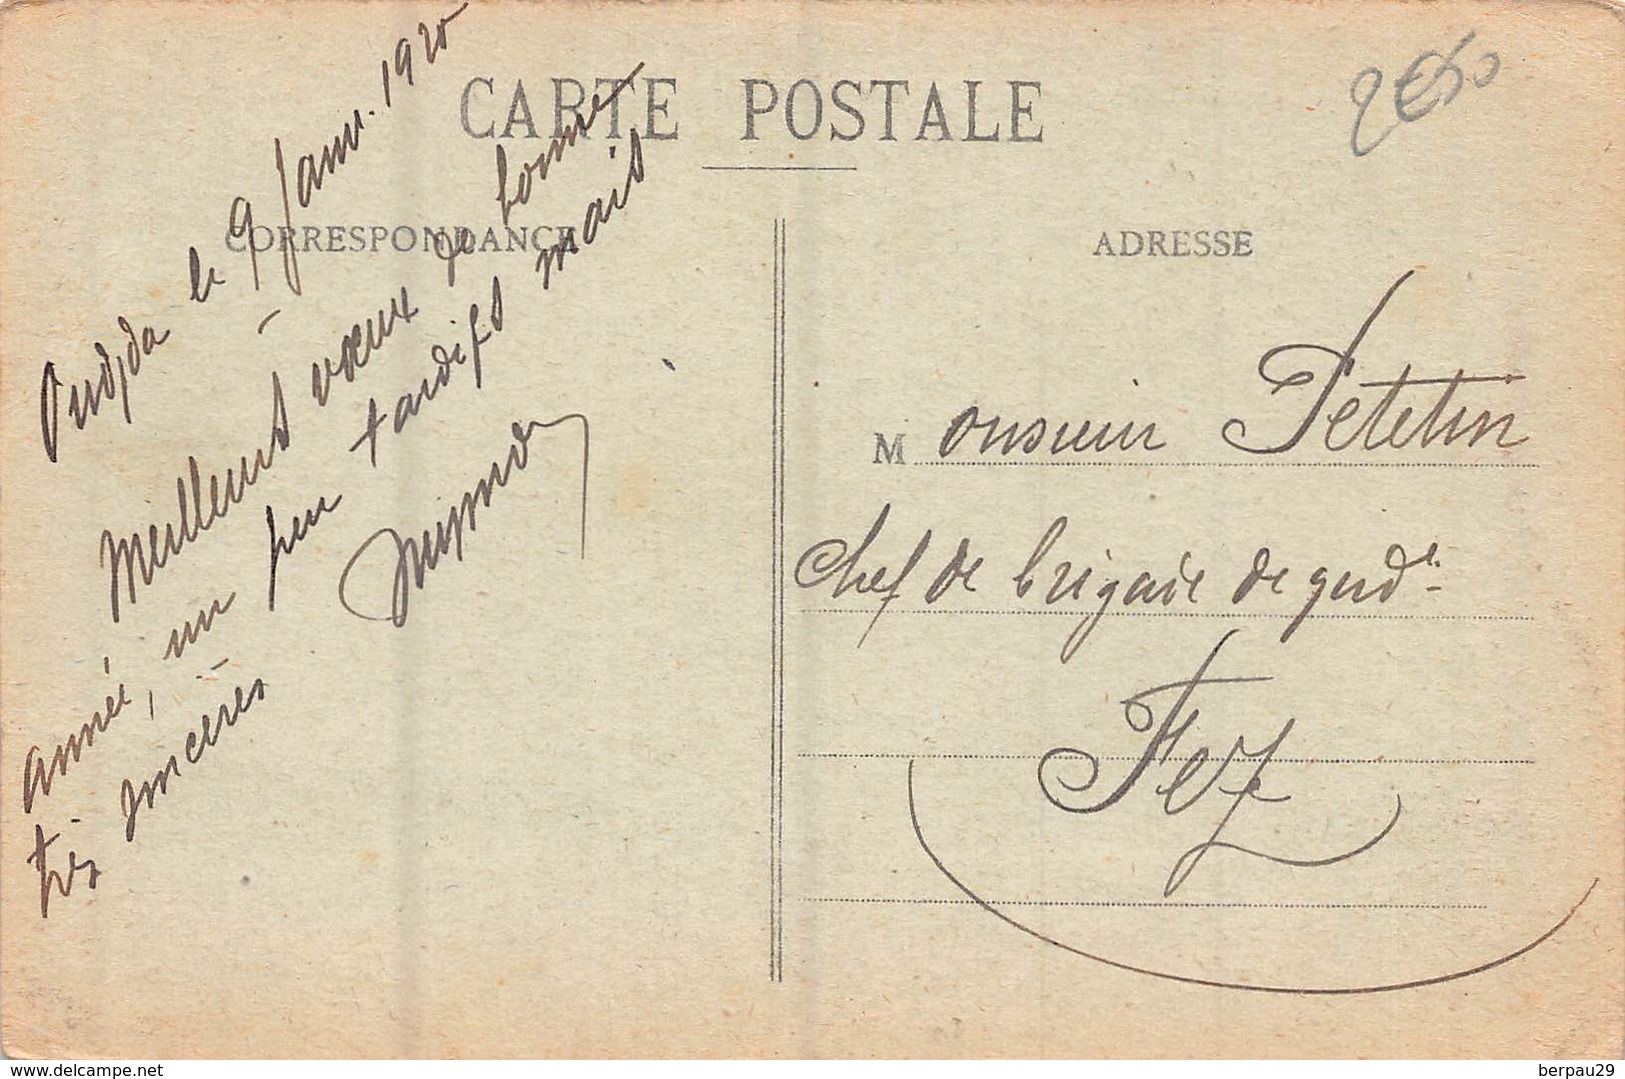 CARTE POSTALE
2€50
CORRESPONDANCE
ADRESSE
Oudjda le 9 Janv. 1920
Meilleurs vœux de bonne
année, un peu tardifs mais
très sincères
Monsieur Petetin
Chef de brigade de gnd
Fez
delcampe.net
berpau29